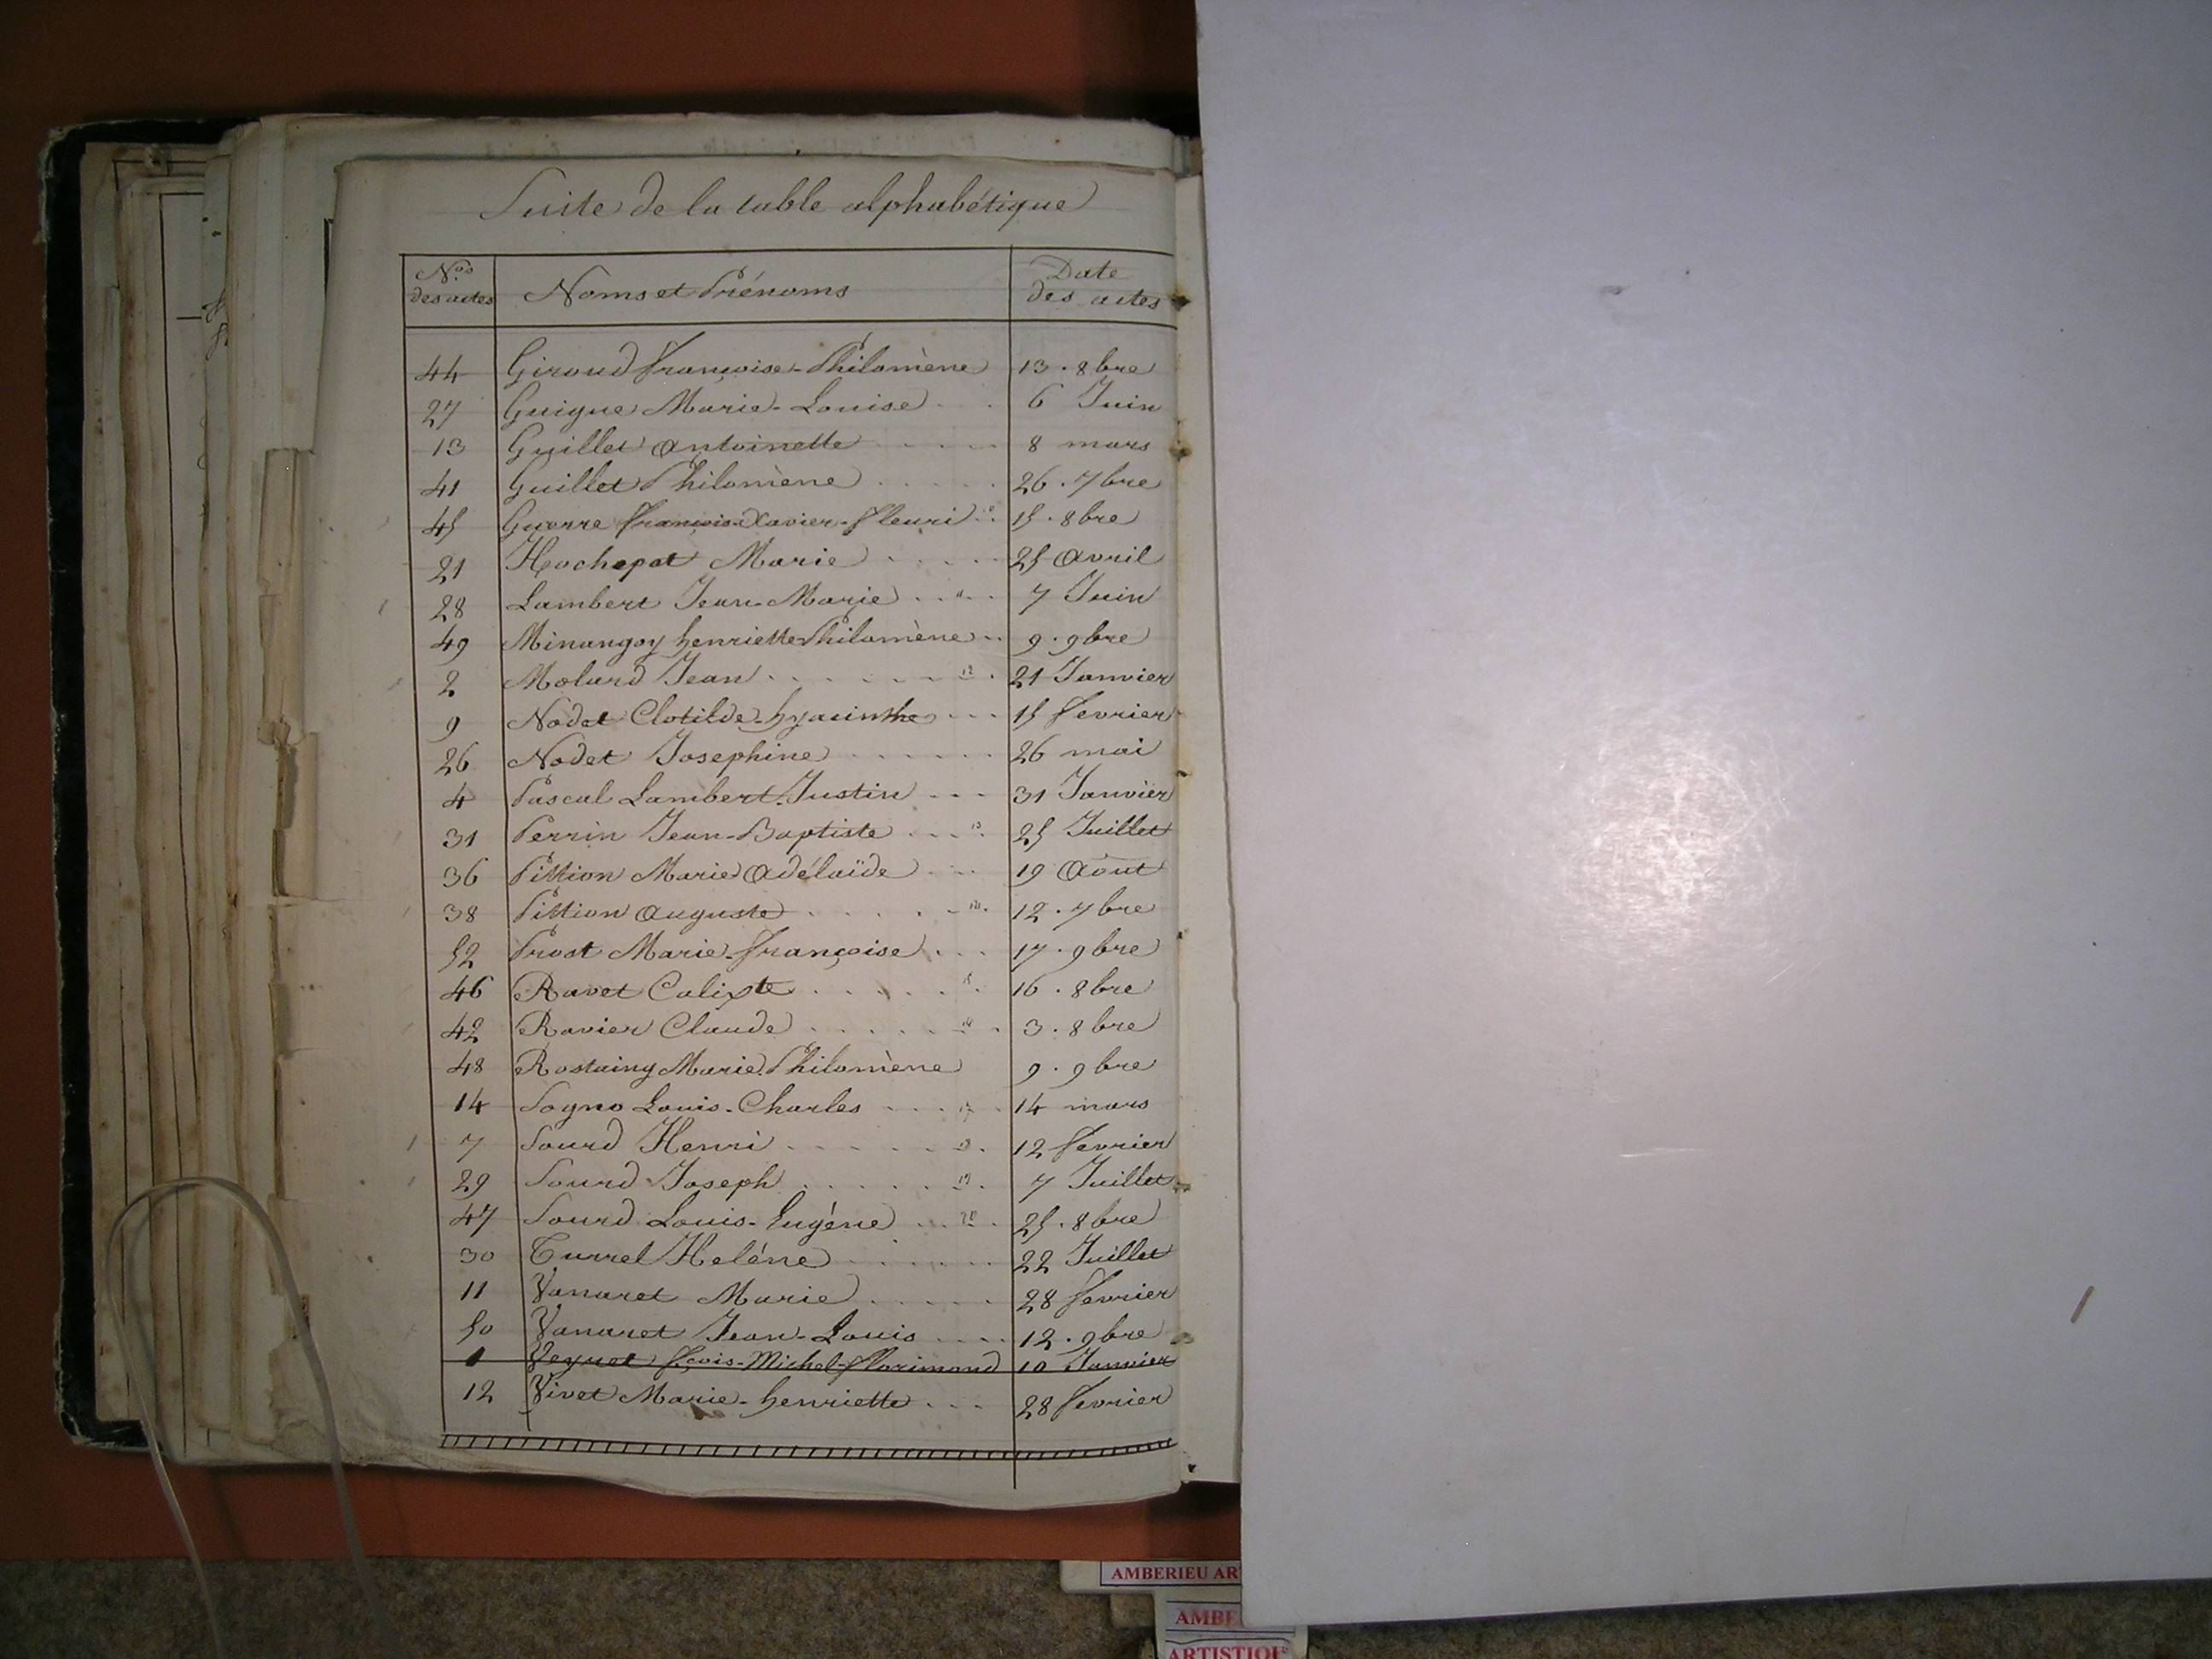 Suite de la table alphabétique
Nos des actes Noms et Prénoms Date des actes
44 Giroud françoise-Philomène 13. 8bre
27 Guigue Marie-Louise 6 Juin
13 Guillet Antoinette 8 mars
41 Guillet Philomène 26. 7bre
45 Guerre françois-Xavier-fleuri 15. 8bre
21 Hochepot Marie 25 Avril
28 Lambert Jean-Marie 7 Juin
49 Minangoy henriette Philomène 9. 9bre
2 Molard Jean 21 Janvier
9 Nodet Clotilde-hyacinthe 15 fevrier
26 Nodet Josephine 26 mai
4 Pascal Lambert-Justin 31 Janvier
31 Perrin Jean-Baptiste 25 Juillet
36 Pittion Marie Adélaïde 19 Aout
38 Pittion Auguste 12. 7bre
52 Prost Marie-françoise 17. 9bre
46 Ravet Calixte 16. 8bre
42 Ravier Claude 3. 8bre
48 Rostaing Marie Philomène 9. 9bre
14 Sogno Louis-Charles 14 mars
7 Sourd Henri 12 fevrier
29 Sourd Joseph 7 Juillet
47 Sourd Louis-Eugène 20 25. 8bre
30 Turrel Heléne 22 Juillet
11 Vanaret Marie 28 fevrier
50 Vanaret Jean-Louis 12. 9bre
1 Veyret fçois-Michel-florimond 10 Janvier
12 Vivet Marie-henriette 28 fevrier
AMBERIEU AR
AMBE
ARTISTIQU